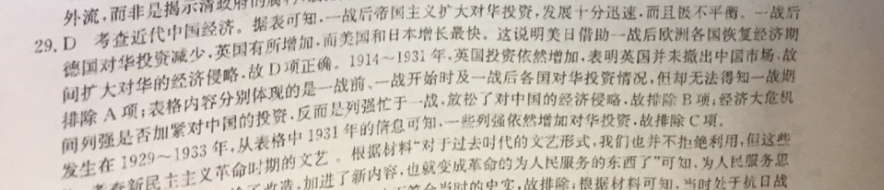 外流,而非是揭示清政府的
29. D 考查近代中国经济。据表可知,一战后帝国主义扩大对华投资,发展十分迅速,而且极不平衡。一战后
德国对华投资减少,英国有所增加,而美国和日本增长最快。这说明美日借助一战后欧洲各国恢复经济期
间扩大对华的经济侵略,故D项正确。1914~1931年,英国投资依然增加,表明英国并未撤出中国市场,故
排除A项;表格内容分别体现的是一战前、一战开始时及一战后各国对华投资情况,但却无法得知一战期
间列强是否加紧对中国的投资,反而是列强忙于一战,放松了对中国的经济侵略,故排除B项;经济大危机
发生在1929~1933年,从表格中1931年的信息可知,一些列强依然增加对华投资,故排除C项。
考查新民主主义革命时期的文艺。根据材料“对于过去时代的文艺形式,我们也并不拒绝利用,但这些
了改造,加进了新内容,也就变成革命的为人民服务的东西了”可知,为人民服务思
符合当时的史实,故排除;根据材料可知,当时处于抗日战